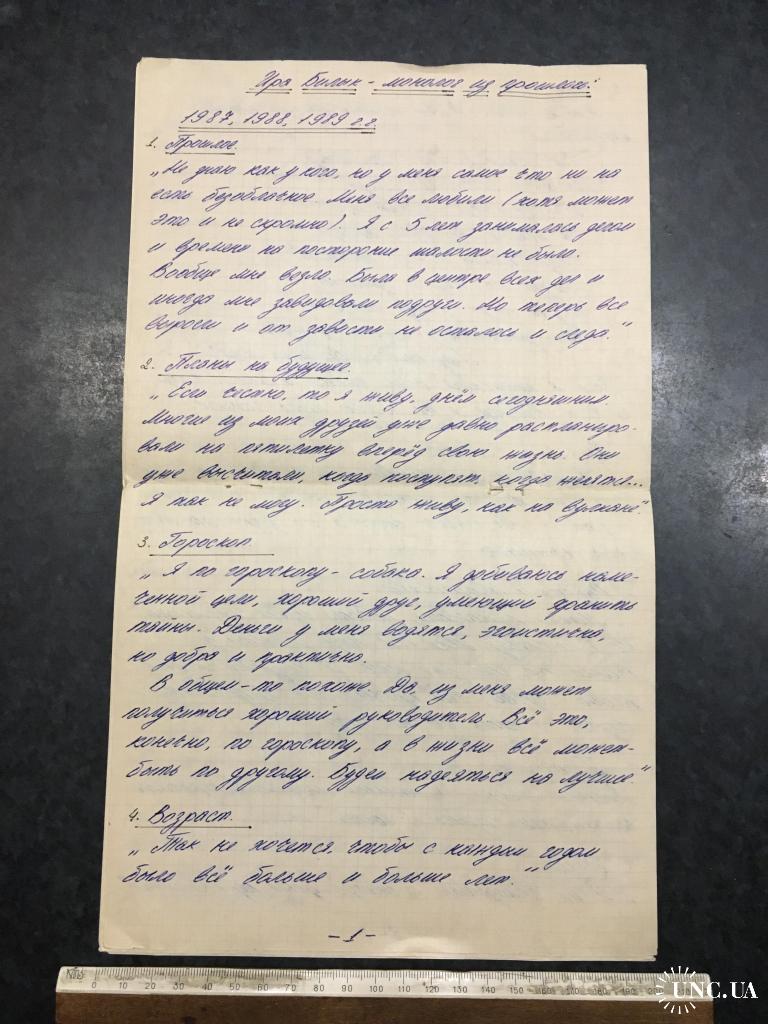 Ира Билык - монолог из прошлого.
1987, 1988, 1989 г.г.
1. Прошлое.
„Не знаю как у кого, но у меня самое что ни на
есть безоблачное. Меня все любили (хотя может
это и не скромно). Я с 5 лет занималась делом
и времени на посторонние шалости не было.
Вообще мне везло. Была в центре всех дел и
иногда мне завидовали подруги. Но теперь все
выросли и от зависти не осталось и следа."
2. Планы на будущее.
„Если честно, то я живу днём сегодняшним.
Многие из моих друзей уже давно распланиро-
вали на пятилетку вперёд свою жизнь. Они
уже высчитали, когда поступят, когда женятся...
Я так не могу. Просто живу, как на вулкане."
3. Гороскоп
„Я по гороскопу - собака. Я добиваюсь наме-
ченной цели, хороший друг, умеющий хранить
тайны. Деньги у меня водятся, эгоистична,
но добра и практична.
В общем-то похоже. Да, из меня может
получиться хороший руководитель. Всё это,
конечно, по гороскопу, а в жизни всё может-
быть по другому. Будем надеяться на лучшее."
4. Возраст.
„Так не хочется, чтобы с каждым годом
было всё больше и больше лет."
-1-
0 10 20 30 40 50 60 70 80 90 100 110 120 130 140 150 160 170 180 190 200
UNC.UA